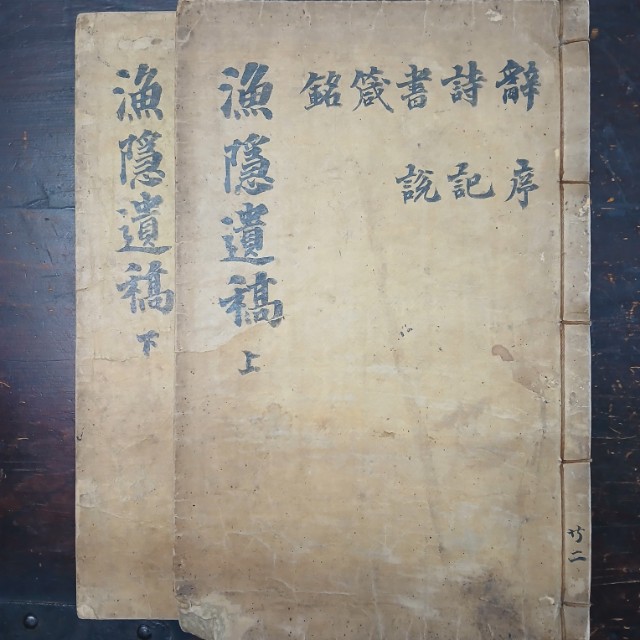 辭序
詩記
書說
箴
銘
漁隠遺稿上
漁隠遺稿下
共二